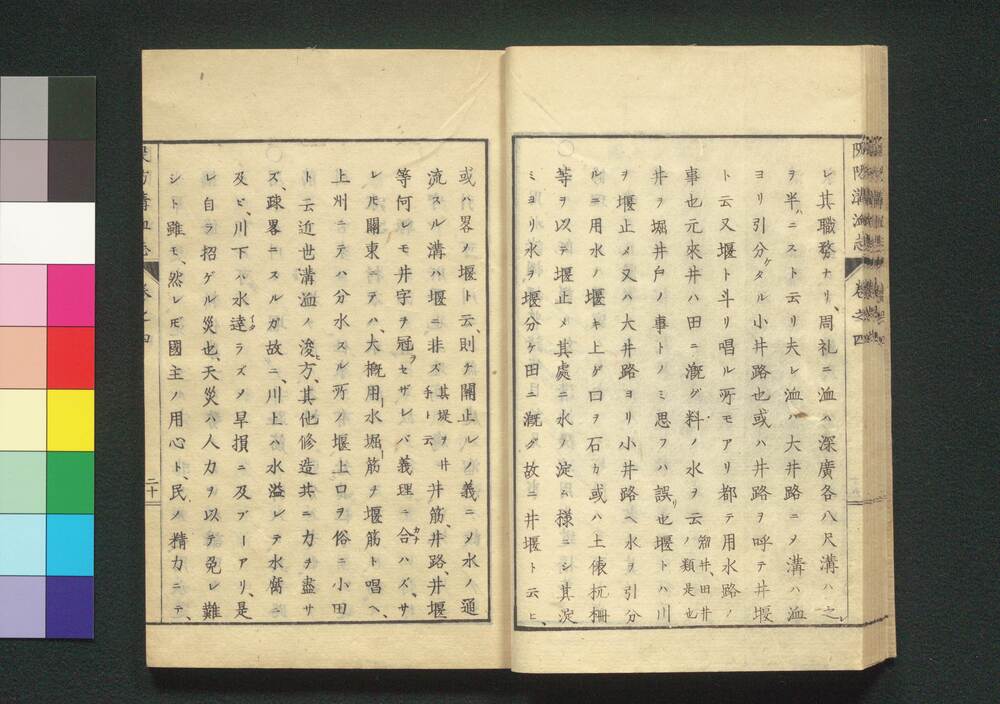 防陽溝洫志 卷之四
レ其職務ナリ、周礼ニ洫ハ深廣各八尺溝ハ之
ヲ半ニスト云リ夫レ洫ハ大井路ニ〆溝ハ洫
ヨリ引分ケタル小井路也或ハ井路ヲ呼テ井堰
ト云又堰ト斗リ唱ル所モアリ都テ用水路ノ
事也元來井ハ田ニ漑グ料ノ水ヲ云 溜井、田井ノ類是也
井ヲ堀井戸ノ事トノミ思フハ誤リ也堰トハ川
ヲ堰止メ又ハ大井路ヨリ小井路ヘ水ヲ引分
ルニ用水ノ堰キ上ゲ口ヲ石カ或ハ土俵杭柵
等ヲ以テ堰止メ其處ニ水ヲ淀ム様ニシ其淀
ミヨリ水ヲ堰分ケ田ニ漑グ故ニ井堰ト云ヒ、
或ハ畧ノ堰ト云、則チ關止ルノ義ニ〆水ノ通
流スル溝ハ堰ニ非ズ 其堤ヲ井手ト云 井筋、井路、井堰
等何レモ井字ヲ冠ヲセザレバ義理ニ合ハズ、サ
レ𪜈關東ニテハ、大概用水堀筋ヲ堰筋ト唱ヘ、
上州ニテハ分水スル所ヲ堰上口ヲ俗ニ小田
ト云近世溝洫ノ浚方、其他修造共ニ力ヲ盡サ
ズ、疎畧ニスルガ故ニ、川上ハ水溢レテ水腐ニ
及ビ、川下ハ水達ラズ〆旱損ニ及ブヿアリ、是
レ自ラ招ゲル災也、天災ハ人力ヲ以テ免レ難
シト雖モ、然レ𪜈國主ノ用心ト、民ノ精力ニテ、
二十